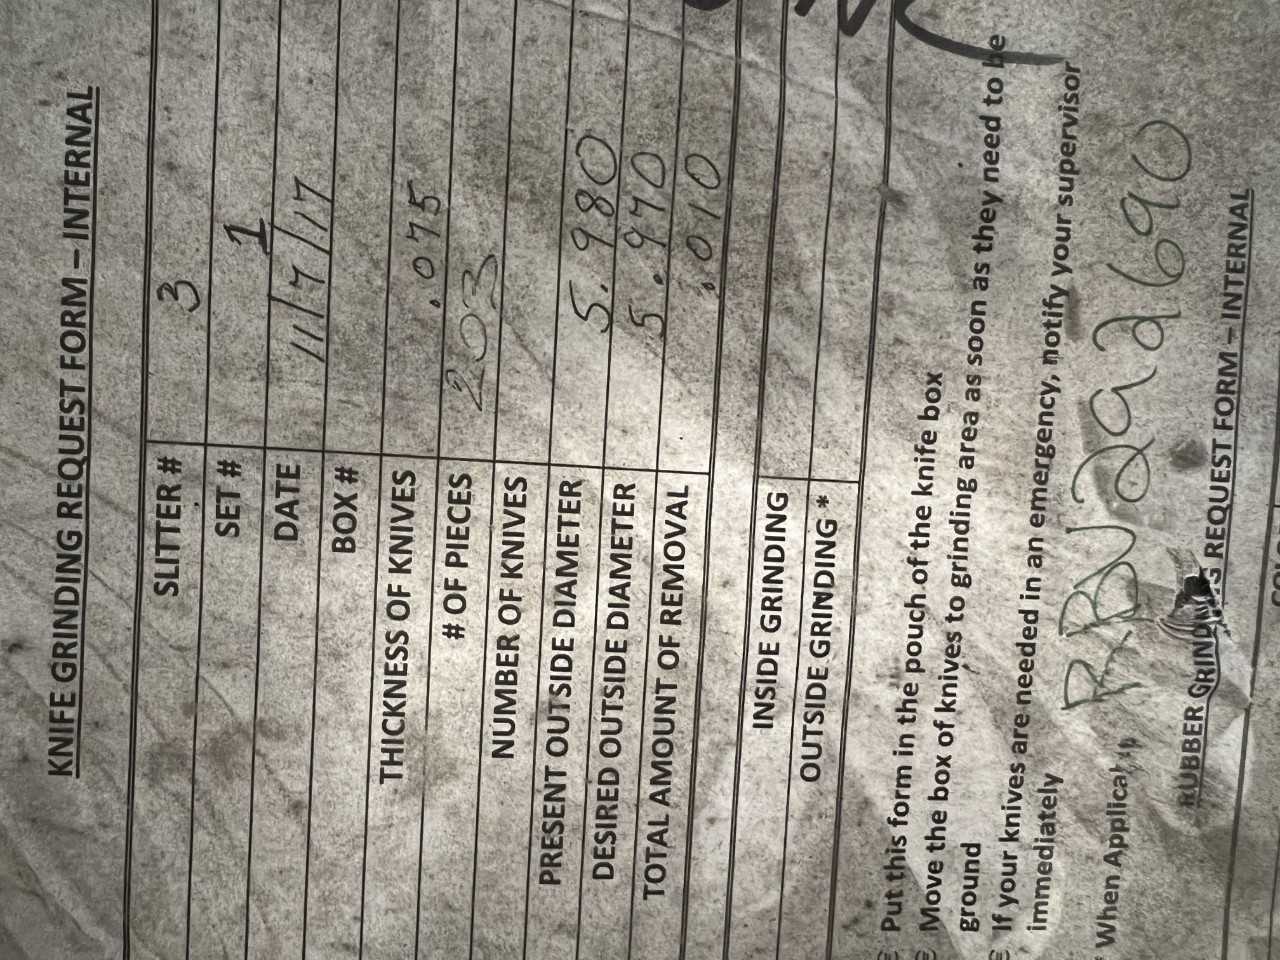 KNIFE GRINDING REQUEST FORM – INTERNAL
SLITTER # 3
SET # 1
DATE 11/7/17
BOX #
THICKNESS OF KNIVES .075
# OF PIECES 203
NUMBER OF KNIVES
PRESENT OUTSIDE DIAMETER 5.980
DESIRED OUTSIDE DIAMETER 5.970
TOTAL AMOUNT OF REMOVAL .010
INSIDE GRINDING
OUTSIDE GRINDING *
Put this form in the pouch of the knife box
Move the box of knives to grinding area as soon as they need to be
ground
If your knives are needed in an emergency, notify your supervisor
immediately
* When
RUBBER GRINDING REQUEST FORM – INTERNAL